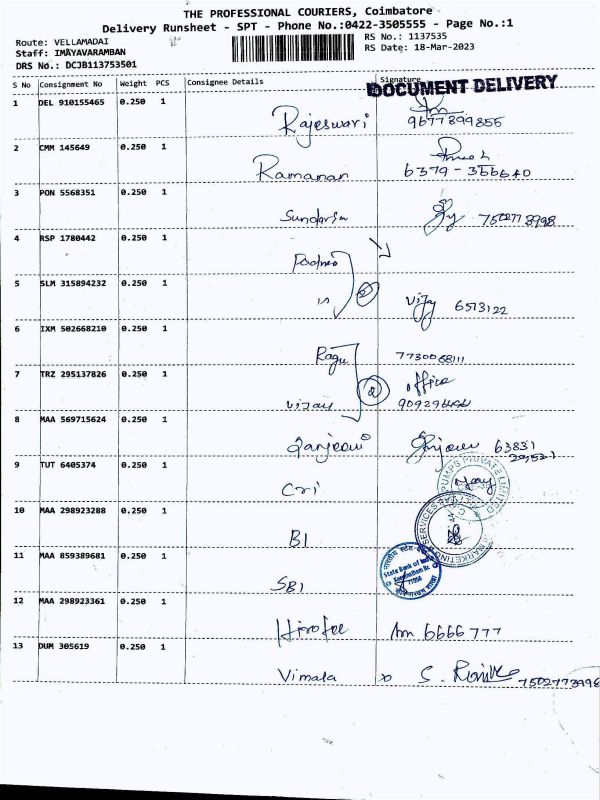 THE PROFESSIONAL COURIERS, Coimbatore
Delivery Runsheet - SPT - Phone No.:0422-3505555 - Page No.:1
Route: VELLAMADAI
Staff: IMAYAVARAMBAN
DRS No.: DCJB113753501
RS No.: 1137535
RS Date: 18-Mar-2023
S No Consignment No Weight PCS Consignee Details Signature
DOCUMENT DELIVERY
1 DEL 910155465 0.250 1
Rajeswari 9677899855
2 CMM 145649 0.250 1
Ramanan 6379-366640
3 PON 5568351 0.250 1
Sundaria 7502773998
4 RSP 1780442 0.250 1
5 SLM 315894232 0.250 1
Vijay 6513122
6 IXM 502668210 0.250 1
Ragu 7730068111
7 TRZ 295137826 0.250 1
2 office
Vijay
8 MAA 569715624 0.250 1
Sanjeevi 63831
9 TUT 6405374 0.250 1
Cri
PUMPS PRIVATE LIMITED
10 MAA 298923288 0.250 1
BI
MARKETING SERVICES
11 MAA 859389681 0.250 1
SBI
State Bank of India
12 MAA 298923361 0.250 1
6666777
13 DUM 305619 0.250 1
Vimala S. 7502773998